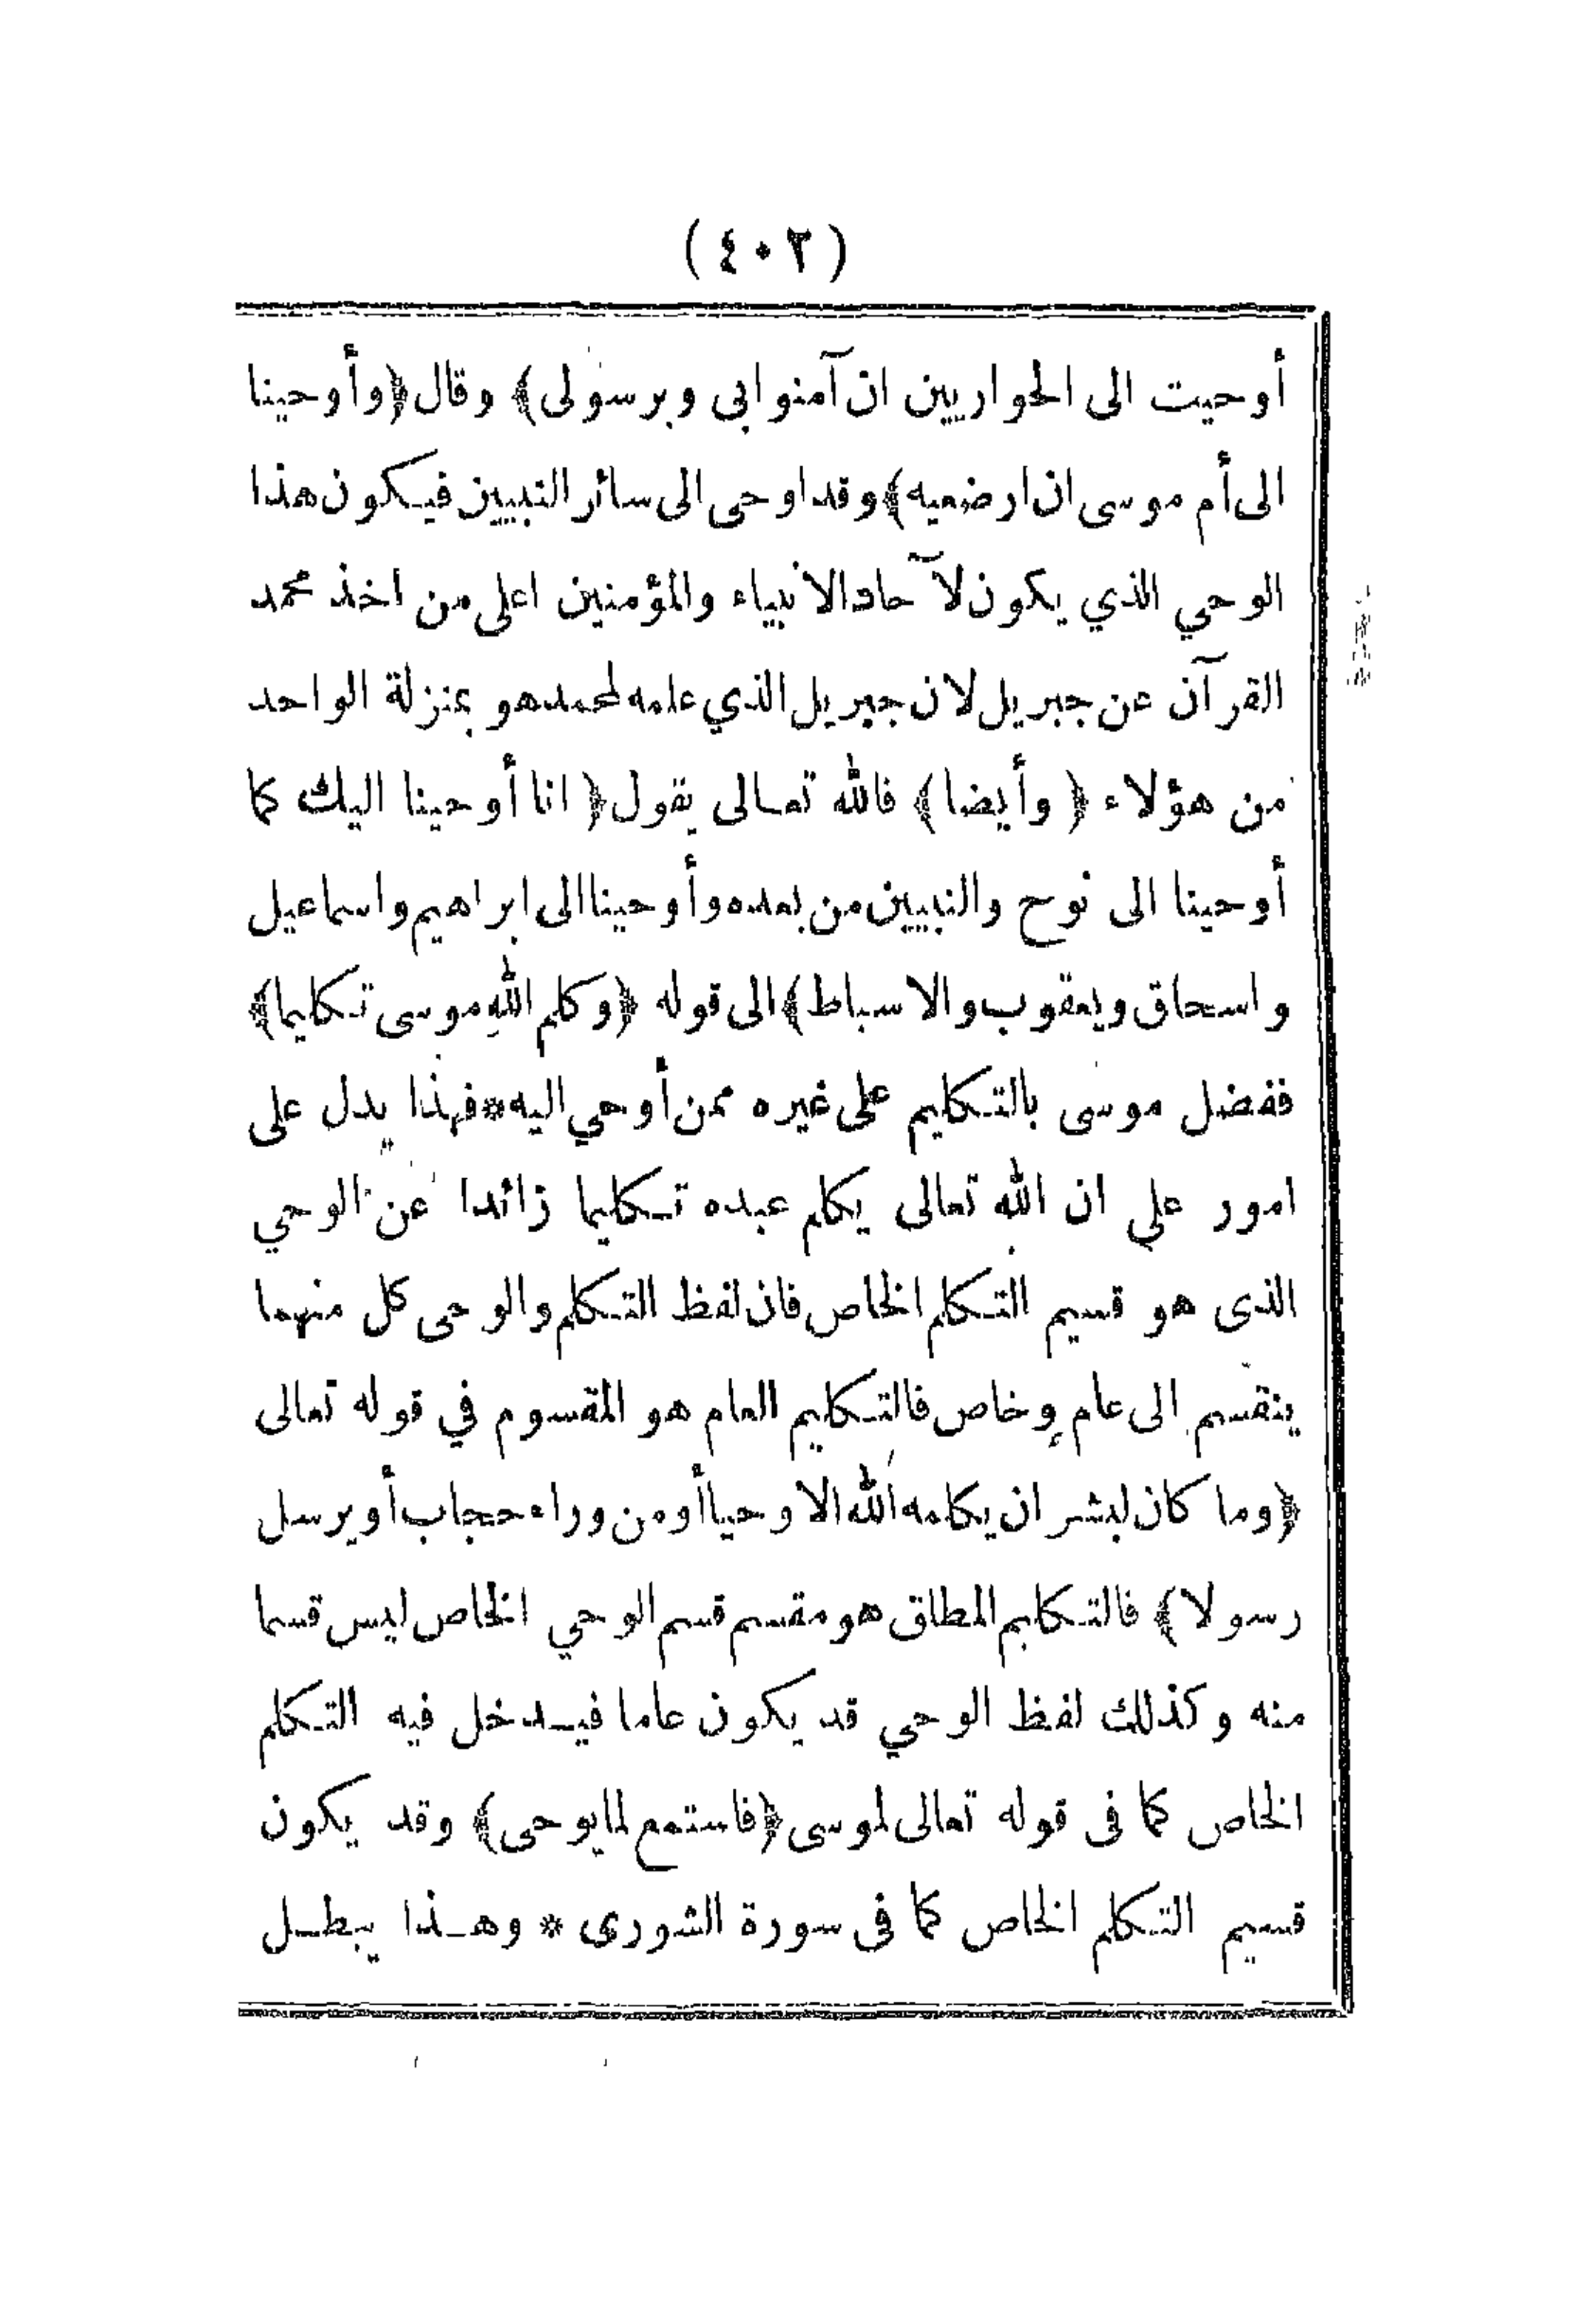 (٤٠٢)
أوحيت الى الحواريين ان آمنوا بي وبرسولى﴾ وقال﴿وأوحينا
الى أم موسى ان ارضعيه﴾وقد اوحى الى سائر النبيين فيكون هذا
الوحي الذي يكون لآحاد الانبياء والمؤمنين اعلى من اخذ محمد
القرآن عن جبريل لان جبريل الذي علمه لمحمد هو بمنزلة الواحد
من هؤلاء ﴿وأيضا﴾ فالله تعالى يقول﴿ انا أوحينا اليك كما
أوحينا الى نوح والنبيين من بعده وأوحينا الى ابراهيم واسماعيل
واسحاق ويعقوب والاسباط﴾الى قوله ﴿وكلم الله موسى تكليما﴾
ففضل موسى بالتكليم على غيره ممن أوحي اليه*فهذا يدل على
امور على ان الله تعالى يكلم عبده تكليما زائدا عن الوحي
الذى هو قسيم التكلم الخاص فان لفظ التكلم والوحى كل منهما
ينقسم الى عام وخاص فالتكليم العام هو المقسوم في قوله تعالى
﴿وما كان لبشر ان يكلمه الله الا وحيا أو من وراء حجاب أو يرسل
رسولا﴾ فالتكليم المطلق هو مقسم قسم الوحي الخاص ليس قسما
منه وكذلك لفظ الوحي قد يكون عاما فيدخل فيه التكلم
الخاص كما فى قوله تعالى لموسى﴿فاستمع لما يوحى﴾ وقد يكون
قسيم التكلم الخاص كما فى سورة الشورى * وهذا يبطل